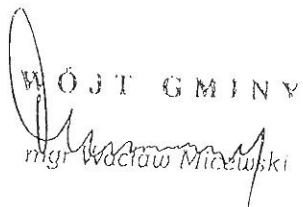 WÓJT GMINY
mgr Wacław Micewski